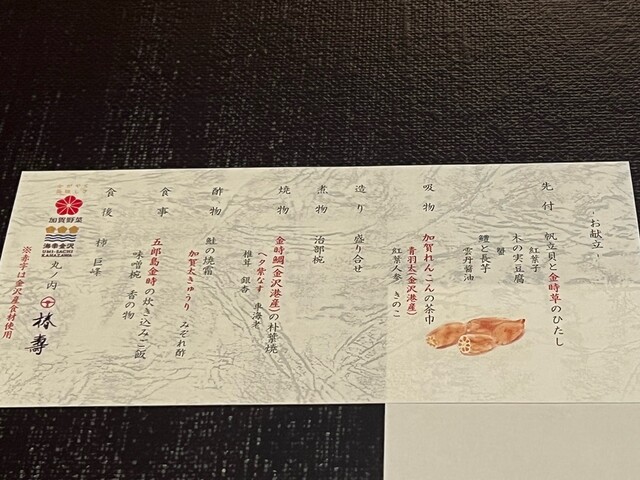 お献立
先付
帆立貝と金時草のひたし
紅葉子
木の実豆腐
蟹
鱧と長芋
雲丹醤油
吸物
加賀れんこんの茶巾
青羽太(金沢港産)
紅葉人参 きのこ
造り
盛り合せ
煮物
治部椀
焼物
金時鯛(金沢港産)の朴葉焼
ヘタ紫なす 車海老
椎茸 銀杏
酢物
鮭の焼霜
加賀太きゅうり みぞれ酢
食事
五郎島金時の炊き込みご飯
味噌椀 香の物
食後
柿 巨峰
加賀野菜
海幸金沢
UMI-SACHI
KANAZAWA
丸ノ内 椿壽
※赤字は金沢産食材使用